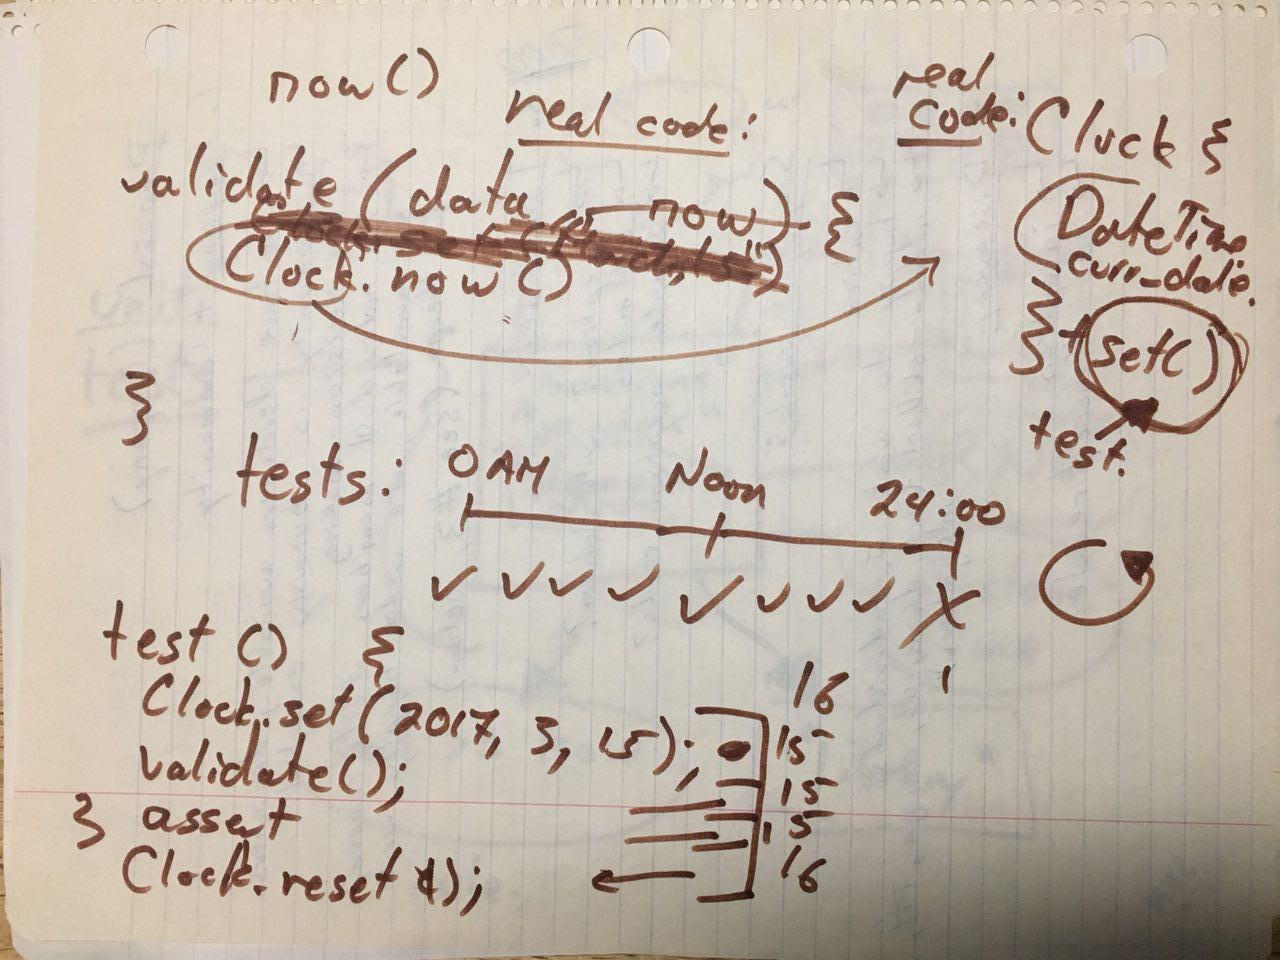 now()
real code:
validate (data now) {
Clock.now()
}
real
code:
Clock {
DateTime
curr_date.
} + set()
test.
tests:
0 AM
Noon
24:00
test () {
Clock.set(2017, 3, 15);
validate();
} assert
Clock.reset();
16
15
15
15
16